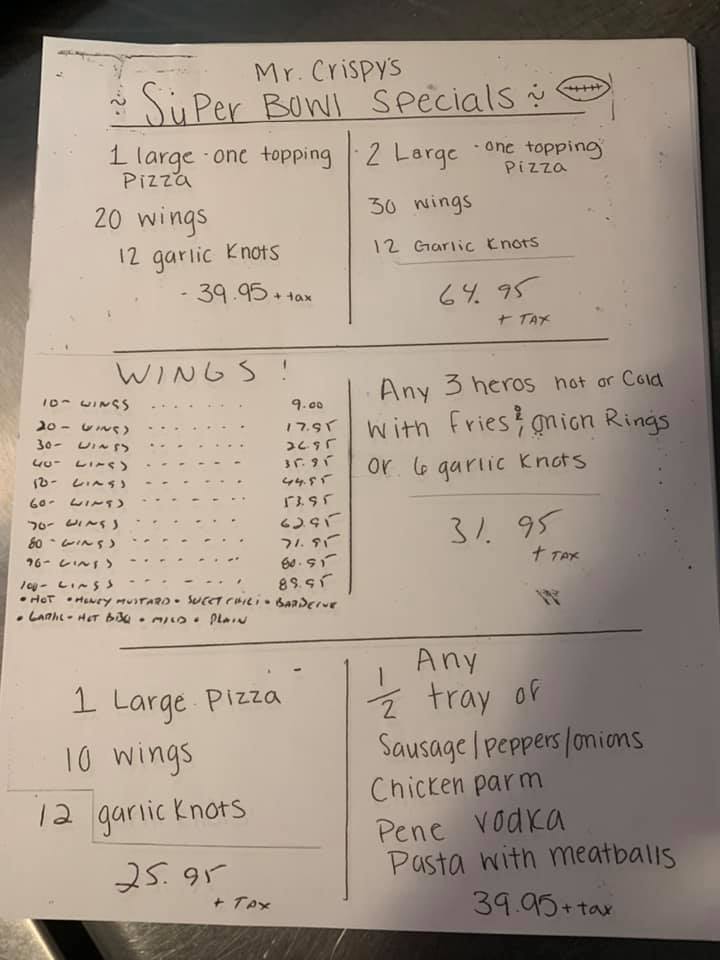 Mr. Crispy's
~ Super Bowl Specials ~
1 large - one topping
Pizza
20 wings
12 garlic Knots
- 39.95 + tax
2 Large - one topping
Pizza
30 wings
12 Garlic Knots
64.95
+ TAX
WINGS!
10- WINGS ...... 9.00
20- WINGS ...... 17.95
30- WINGS ...... 26.95
40- WINGS ...... 35.95
50- WINGS ...... 44.95
60- WINGS ...... 53.95
70- WINGS ...... 62.95
80- WINGS ...... 71.95
90- WINGS ...... 80.95
100- WINGS ...... 89.95
• HOT • HONEY MUSTARD • SWEET CHILI • BARBECUE
• GARLIC - HOT BBQ • MILD • PLAIN
Any 3 heros hot or Cold
With Fries, & onion Rings
or 6 garlic Knots
31.95
+ TAX
1 Large Pizza
10 wings
12 garlic Knots
25.95
+ TAX
Any
1/2 tray of
Sausage/peppers/onions
Chicken parm
Pene vodka
Pasta with meatballs
39.95 + tax